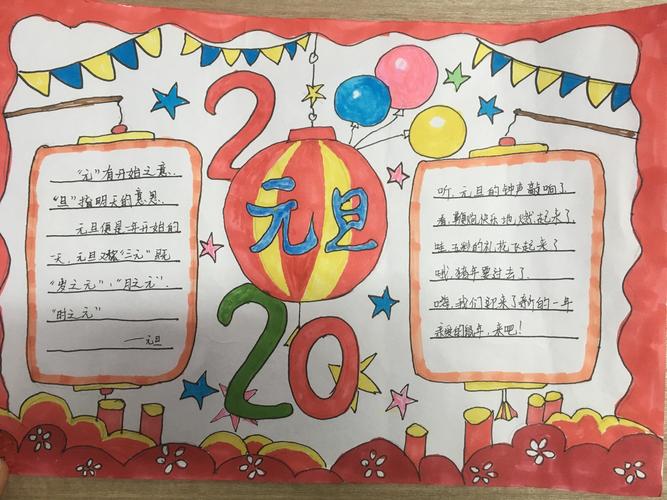 2
元旦
20
"元"有开始之意.
"旦"指明天的意思.
元旦便是一年开始的
一天,元旦又称"三元"既
"岁之元"、"月之元".
"时之元"
——元旦
听,元旦的钟声敲响了
看,鞭炮快乐地燃起来了,
哇,五彩的礼花飞起来了
哦,猪年要过去了,
嗨,我们迎来了新的一年
的鼠年,来吧!